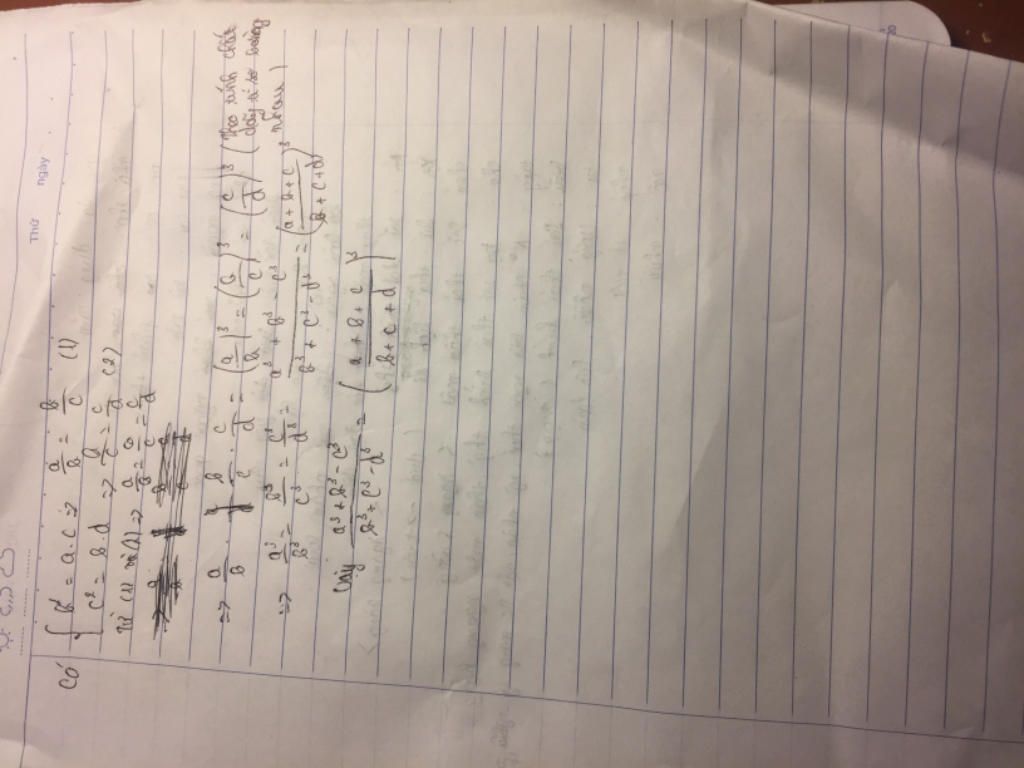 Thứ ngày
Có { b² = a.c => a/b = b/c (1)
c² = b.d => b/c = c/d (2)
Từ (2) và (1) => a/b = b/c = c/d
=> a/b . b/c . c/d = (a/b)³ = (b/c)³ = (c/d)³ (theo tính chất
dãy tỉ số bằng
nhau)
=> a³/b³ = b³/c³ = c³/d³ = (a³ + b³ - c³)/(b³ + c³ - d³) = ((a + b + c)/(b + c + d))³
Vậy (a³ + b³ - c³)/(b³ + c³ - d³) = ((a + b + c)/(b + c + d))³